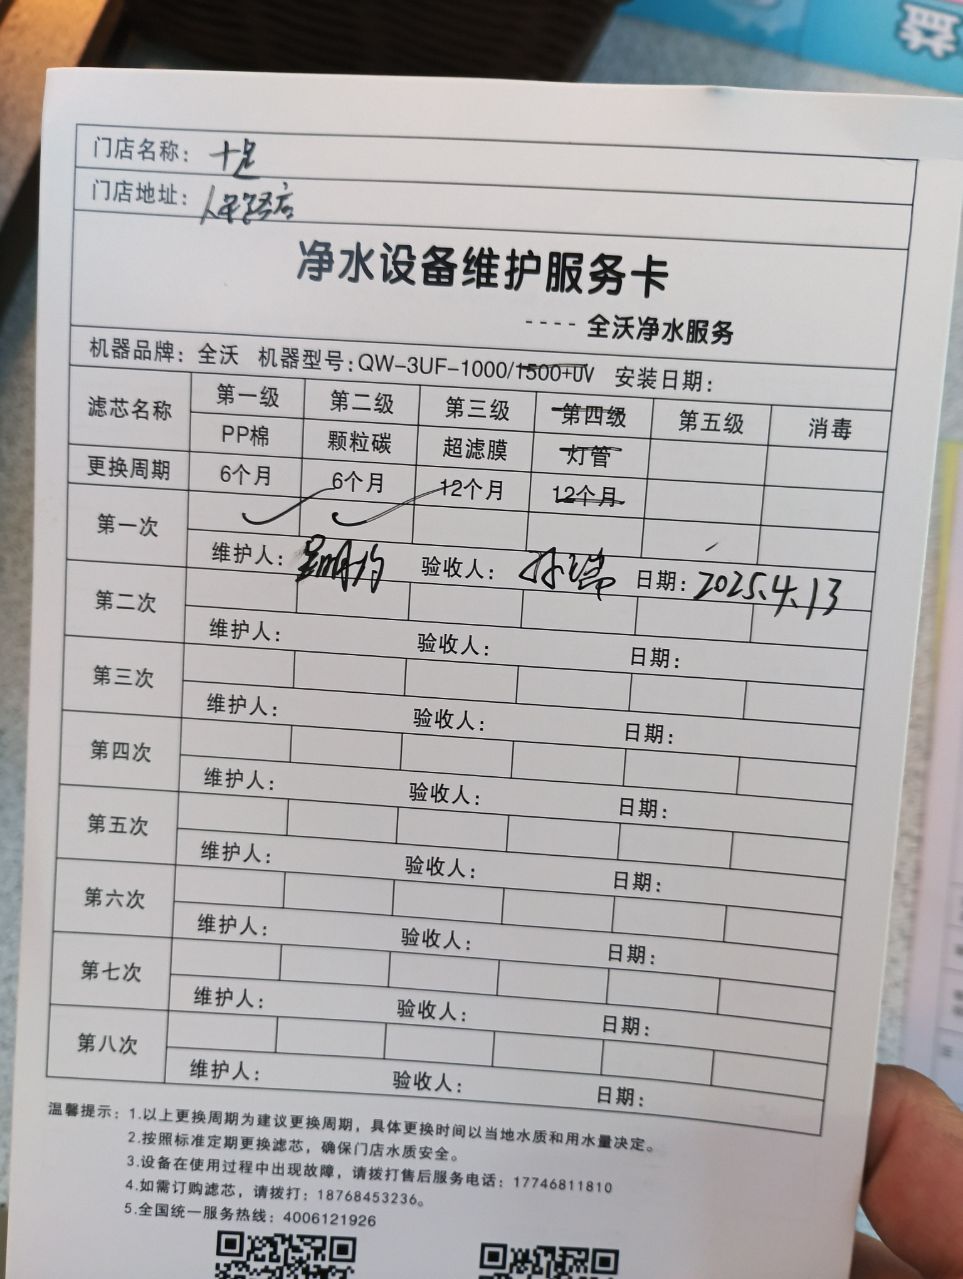 益
门店名称：十足
门店地址：人民路店
净水设备维护服务卡
---- 全沃净水服务
机器品牌：全沃 机器型号：QW-3UF-1000/1500+UV 安装日期：
滤芯名称 第一级 第二级 第三级 第四级 第五级 消毒
PP棉 颗粒碳 超滤膜 灯管
更换周期 6个月 6个月 12个月 12个月
第一次
维护人： 验收人： 日期：2025.4.13
第二次
维护人： 验收人： 日期：
第三次
维护人： 验收人： 日期：
第四次
维护人： 验收人： 日期：
第五次
维护人： 验收人： 日期：
第六次
维护人： 验收人： 日期：
第七次
维护人： 验收人： 日期：
第八次
维护人： 验收人： 日期：
温馨提示：1.以上更换周期为建议更换周期，具体更换时间以当地水质和用水量决定。
2.按照标准定期更换滤芯，确保门店水质安全。
3.设备在使用过程中出现故障，请拨打售后服务电话：17746811810
4.如需订购滤芯，请拨打：18768453236。
5.全国统一服务热线：4006121926